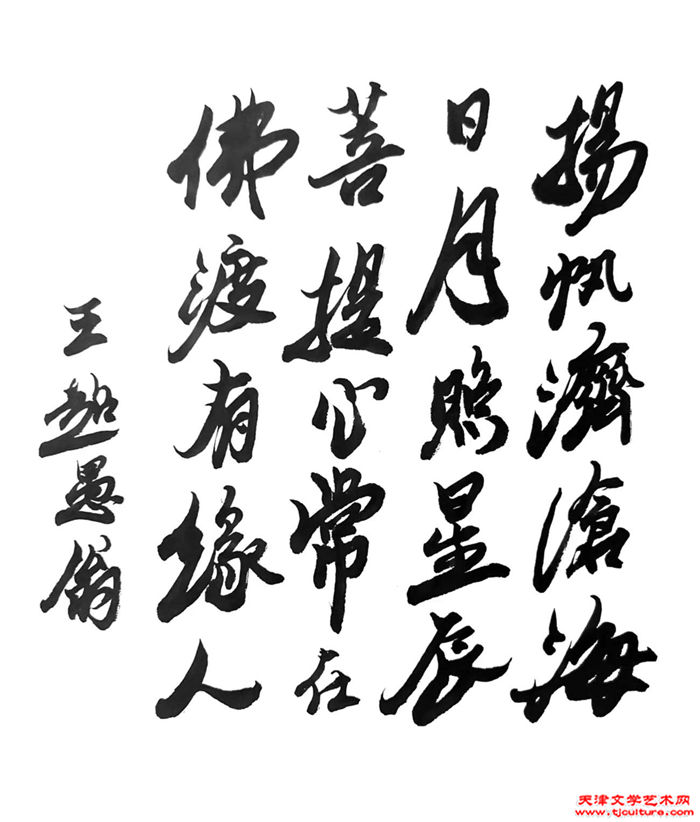 揚帆濟滄海
日月照星辰
菩提心常在
佛渡有緣人
王超愚翁
天津文学艺术网
www.tjculture.com